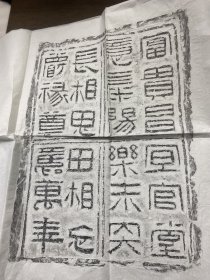 富貴昌宜宮堂
意氣陽樂未央
長相思毋相忘
爵祿尊壽萬年